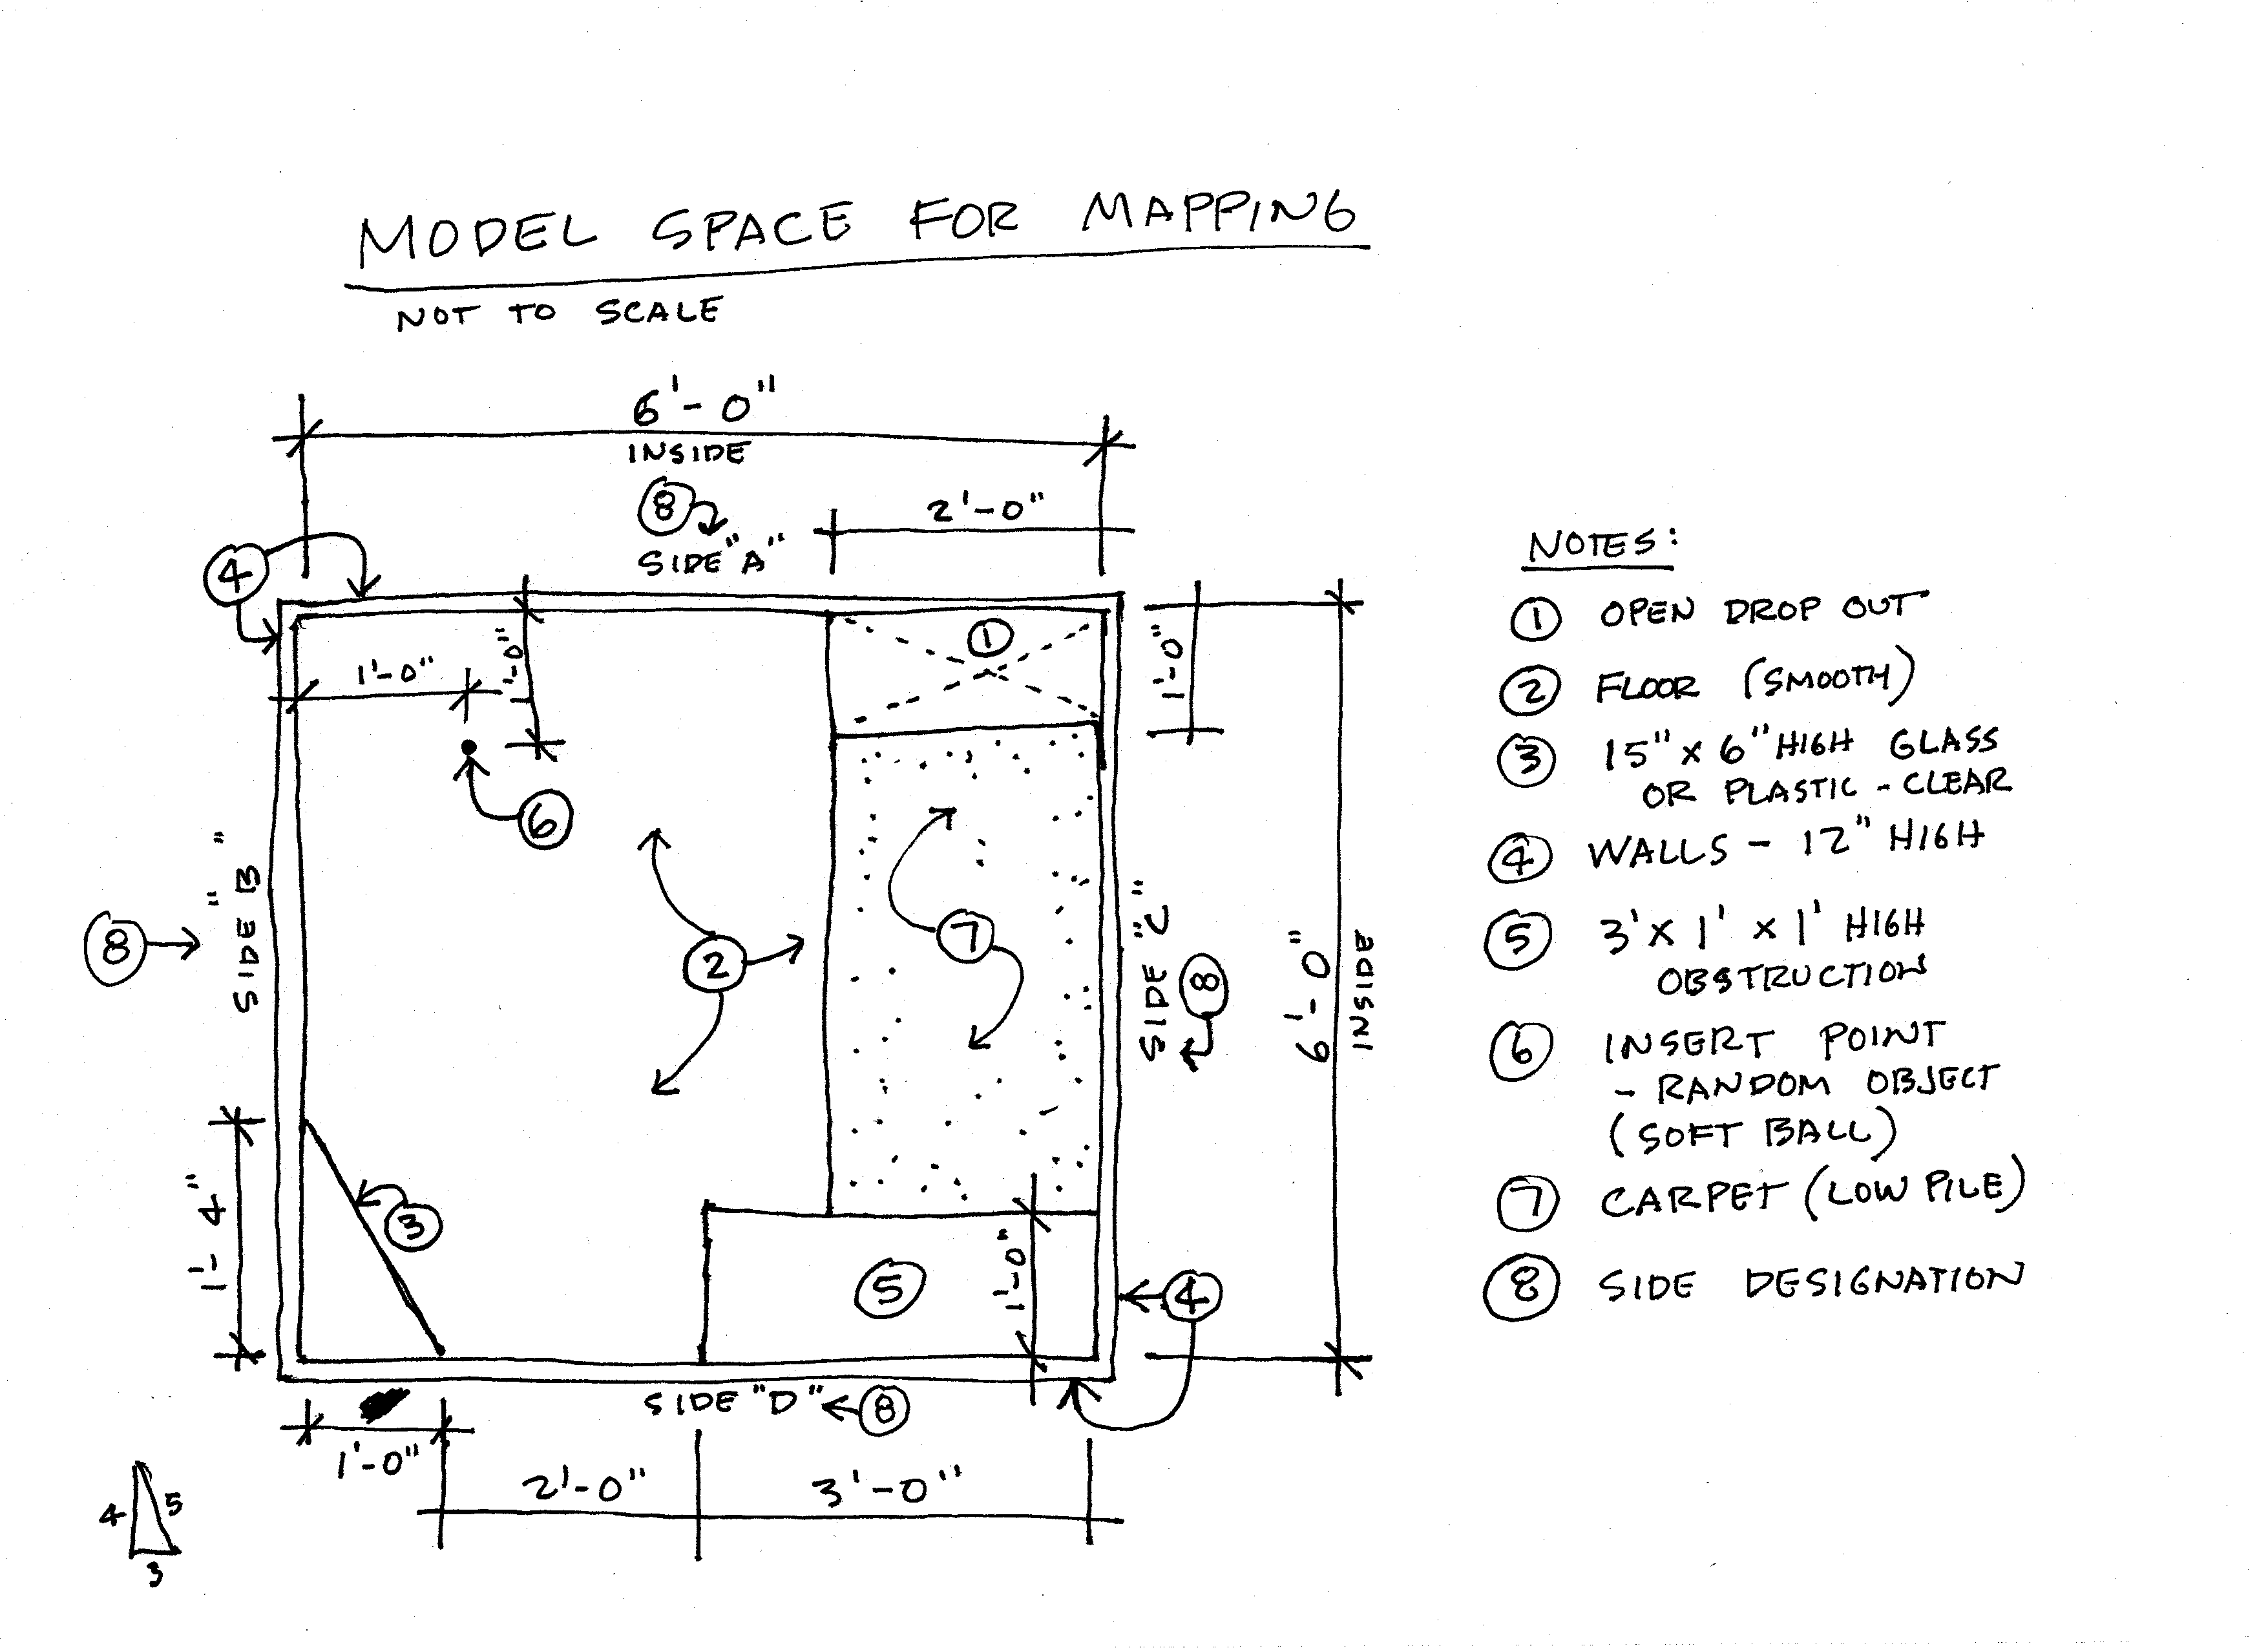 MODEL SPACE FOR MAPPING
NOT TO SCALE
6'-0"
INSIDE
8
SIDE "A"
2'-0"
4
1'-0"
1'-0"
1
1'-0"
6
2
7
8
SIDE "B"
SIDE "C"
8
6'-0"
INSIDE
1'-4"
3
5
1'-0"
4
SIDE "D"
8
1'-0"
2'-0"
3'-0"
4
5
3
NOTES:
1 OPEN DROP OUT
2 FLOOR (SMOOTH)
3 15" x 6" HIGH GLASS
OR PLASTIC - CLEAR
4 WALLS - 12" HIGH
5 3' x 1' x 1' HIGH
OBSTRUCTION
6 INSERT POINT
- RANDOM OBJECT
(SOFT BALL)
7 CARPET (LOW PILE)
8 SIDE DESIGNATION